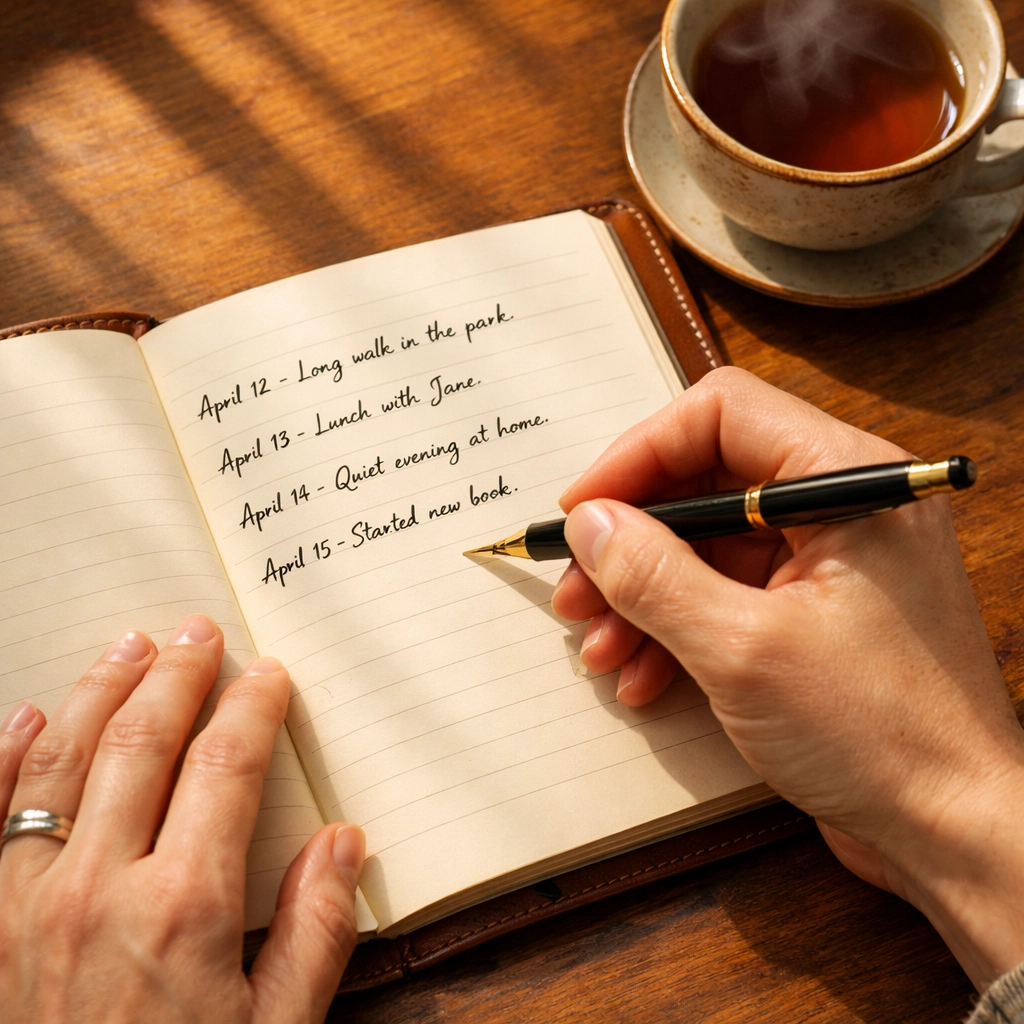 April 12 - Long walk in the park.
April 13 - Lunch with Jane.
April 14 - Quiet evening at home.
April 15 - Started new book.